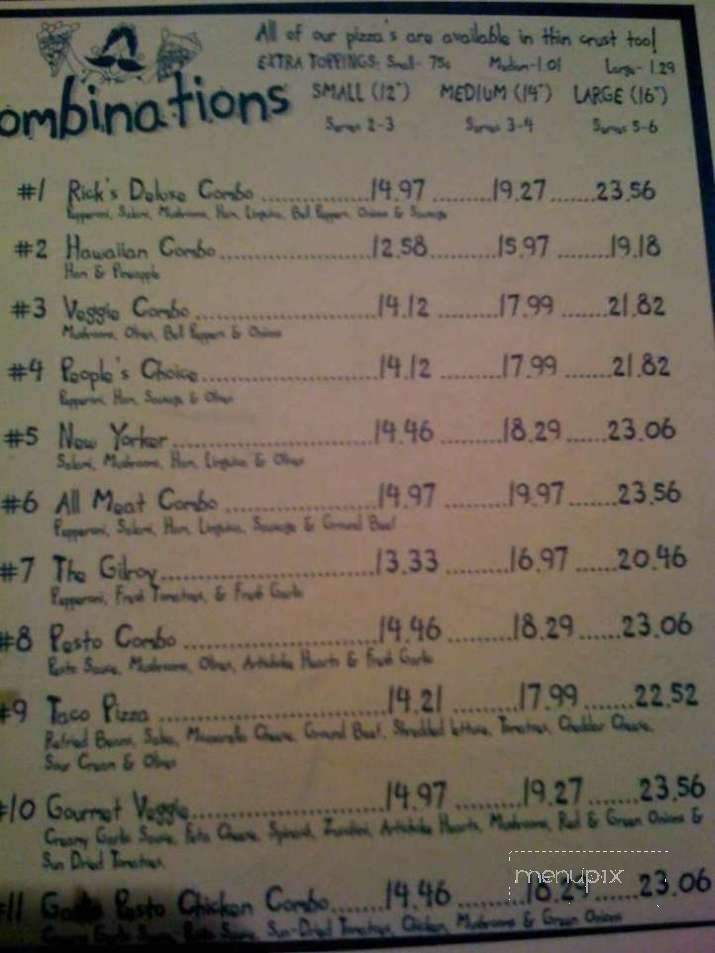 All of our pizza's are available in thin crust too!
EXTRA TOPPINGS: Small- 75¢ Medium-1.01 Large- 1.29
ombinations SMALL (12") MEDIUM (14") LARGE (16")
Serves 2-3 Serves 3-4 Serves 5-6
#1 Rick's Deluxe Combo ..................14.97 .........19.27 ........23.56
Pepperoni, Salami, Mushrooms, Ham, Linguica, Bell Peppers, Onions & Sausage
#2 Hawaiian Combo.........................12.58..........15.97 .........19.18
Ham & Pineapple
#3 Veggie Combo .............................14.12 ..........17.99 .......21.82
Mushrooms, Olives, Bell Peppers & Onions
#4 People's Choice............................14.12 .........17.99 .......21.82
Pepperoni, Ham, Sausage & Olives
#5 New Yorker ................................14.46 .........18.29 ......23.06
Salami, Mushrooms, Ham, Linguica & Olives
#6 All Meat Combo ........................14.97 .........19.97 ......23.56
Pepperoni, Salami, Ham, Linguica, Sausage & Ground Beef
#7 The Gilroy..................................13.33 .........16.97 .......20.46
Pepperoni, Fresh Tomatoes, & Fresh Garlic
#8 Pesto Combo ..............................14.46 .........18.29 ......23.06
Pesto Sauce, Mushrooms, Olives, Artichoke Hearts & Fresh Garlic
#9 Taco Pizza ..................................14.21 ..........17.99 .......22.52
Refried Beans, Salsa, Mozzarella Cheese, Ground Beef, Shredded lettuce, Tomatoes, Cheddar Cheese,
Sour Cream & Olives
#10 Gourmet Veggie...........................14.97 .........19.27 ......23.56
Creamy Garlic Sauce, Feta Cheese, Spinach, Zucchini, Artichoke Hearts, Mushrooms, Red & Green Onions &
Sun Dried Tomatoes
#11 Garlic Pesto Chicken Combo.......14.46 .........18.29 ......23.06
Creamy Garlic Sauce, Pesto Sauce, Sun-Dried Tomatoes, Chicken, Mushrooms & Green Onions
menupix